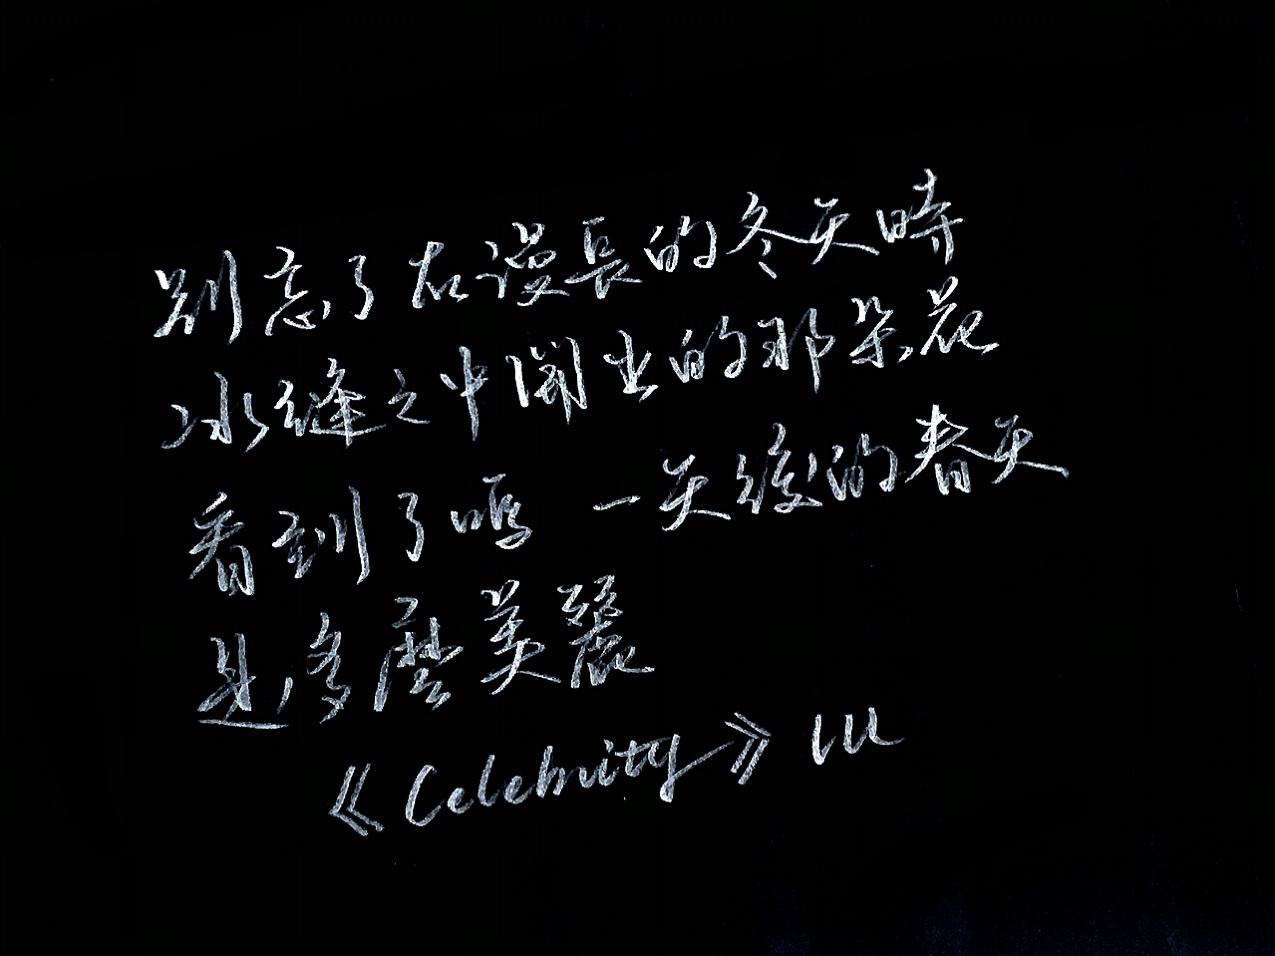 別忘了在漫長的冬天時
冰縫之中開出的那朵花
看到了嗎 一天後的春天
是多麼美麗
《Celebrity》IU